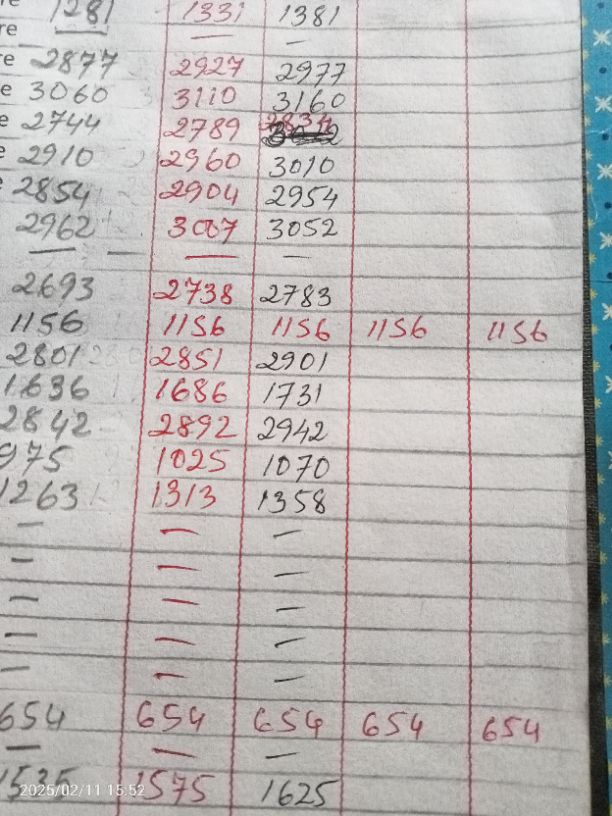 re 1281 1331 1381
re — — —
e 2877 2927 2977
e 3060 3110 3160
e 2744 2789 2834
e 2910 2960 3010
2854 2904 2954
2962 3007 3052
— — — —
2693 2738 2783
1156 1156 1156 1156 1156
2801 2851 2901
1636 1686 1731
2842 2892 2942
975 1025 1070
1263 1313 1358
— — —
— — —
— — —
— — —
— — —
654 654 654 654 654
— — —
1535 1575 1625
2025/02/11 15:52